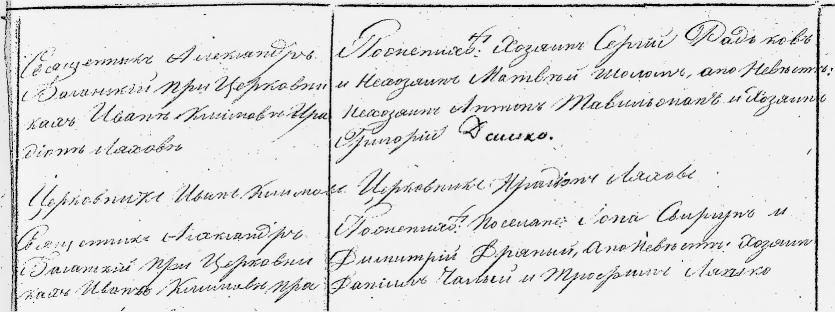 Священникъ Александръ
Баланскій при Церковни
кахъ Иванъ Климовъ Ира
діонъ Ляховъ
Церковникъ Иванъ Климовъ
Священникъ Александръ
Баланскій при Церковни
кахъ Иванъ Климовъ Ира
По женихѣ: Хозяинъ Сергій Радьковъ
и Нехозяинъ Матвѣй Шоломъ, а по Невѣстѣ:
Нехозяинъ Антонъ и Хозяинъ
Григорій Дашко.
Церковникъ Ирадіонъ Ляховъ
По женихѣ: Поселяне: Іона Свирунъ и
Димитрій Дряный, а по Невѣстѣ: Хозяинъ
Даніилъ Чалый и Трофимъ Ляшко